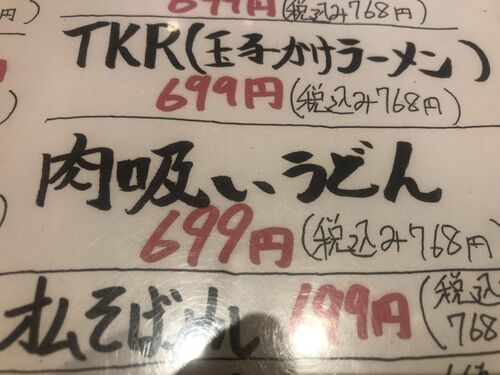 699円(税込み768円)
TKR(玉子かけラーメン)
699円(税込み768円)
肉吸いうどん
699円(税込み768円)
オムそばめし 699円(税込み768